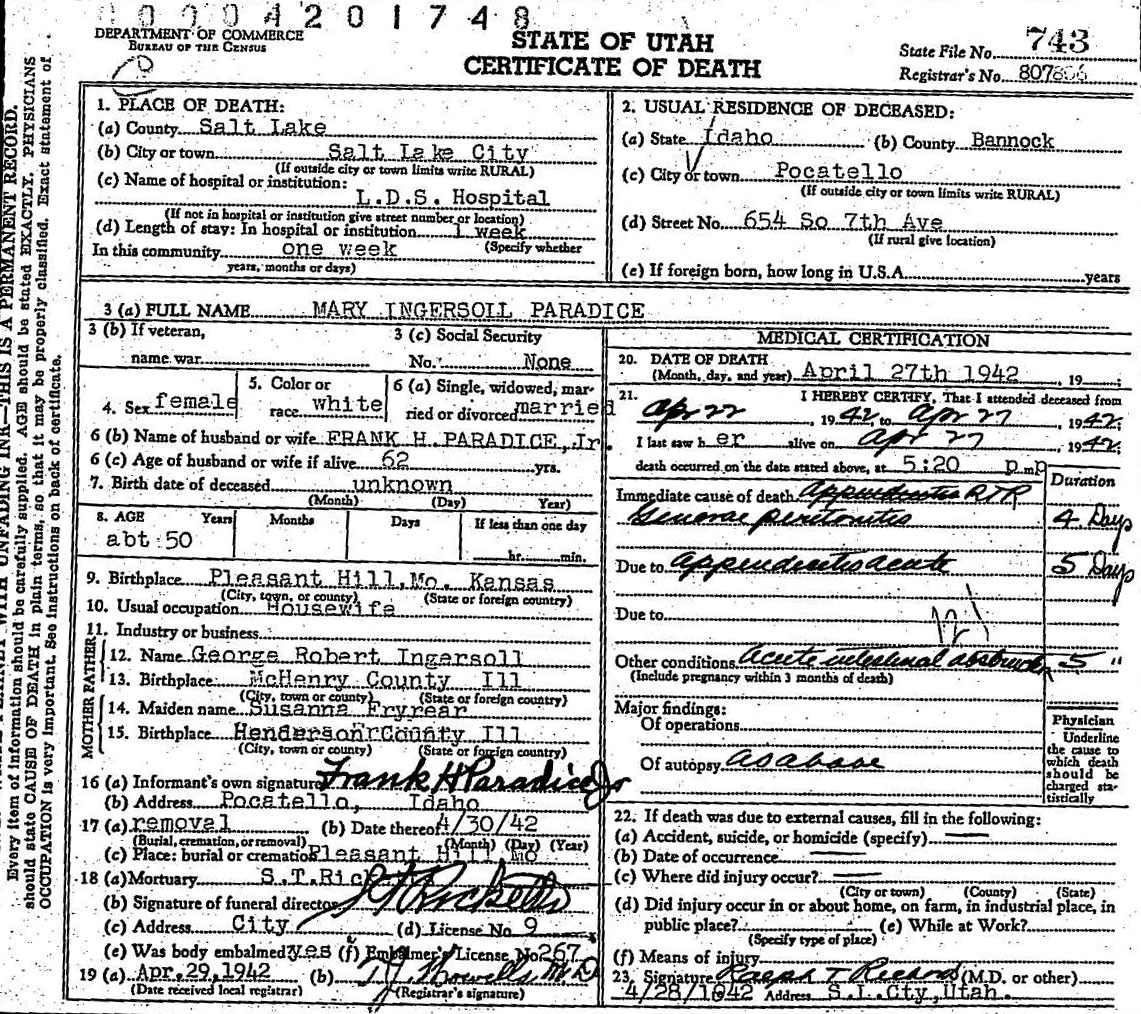 0 0 0 4 2 0 1 7 4 8
DEPARTMENT OF COMMERCE
BUREAU OF THE CENSUS
STATE OF UTAH
CERTIFICATE OF DEATH
State File No. 743
Registrar's No. 807806
1. PLACE OF DEATH:
(a) County Salt Lake
(b) City or town Salt Lake City
(If outside city or town limits write RURAL)
(c) Name of hospital or institution:
L.D.S. Hospital
(If not in hospital or institution give street number or location)
(d) Length of stay: In hospital or institution 1 week
In this community one week (Specify whether
years, months or days)
2. USUAL RESIDENCE OF DECEASED:
(a) State Idaho (b) County Bannock
(c) City or town Pocatello
(If outside city or town limits write RURAL)
(d) Street No. 654 So 7th Ave
(If rural give location)
(e) If foreign born, how long in U.S.A. years
3 (a) FULL NAME MARY INGERSOLL PARADICE
3 (b) If veteran, 3 (c) Social Security
name war. No. None
4. Sex female 5. Color or race white 6 (a) Single, widowed, married or divorced married
6 (b) Name of husband or wife FRANK H. PARADICE, Jr.
6 (c) Age of husband or wife if alive 62 yrs.
7. Birth date of deceased unknown
(Month) (Day) Year)
8. AGE Years Months Days If less than one day
abt 50 hr. min.
9. Birthplace Pleasant Hill, Mo. Kansas
(City, town, or county) (State or foreign country)
10. Usual occupation Housewife
11. Industry or business
FATHER
12. Name George Robert Ingersoll
13. Birthplace McHenry County Ill
(City, town or county) (State or foreign country)
MOTHER
14. Maiden name Susanna Fryrear
15. Birthplace Henderson County Ill
(City, town or county) (State or foreign country)
16 (a) Informant's own signature Frank H Paradice Jr
(b) Address Pocatello, Idaho
17 (a) removal (b) Date thereof 4/30/42
(Burial, cremation, or removal) (Month) (Day) (Year)
(c) Place: burial or cremation Pleasant Hill Mo
18 (a) Mortuary S.T.Rick
(b) Signature of funeral director Ricketts
(c) Address City (d) License No. 9
(e) Was body embalmed yes (f) Embalmer's License No 267
19 (a) Apr. 29, 1942 (b) T J Howells M.D
(Date received local registrar) (Registrar's signature)
MEDICAL CERTIFICATION
20. DATE OF DEATH
(Month, day, and year) April 27th 1942, 19
21. I HEREBY CERTIFY, That I attended deceased from
Apr 22, 1942, to Apr 27, 1942.
I last saw h er alive on Apr 27 1942.
death occurred on the date stated above, at 5:20 p.m
Duration
Immediate cause of death Appendicitis
General peritonitis 4 Days
Due to Appendicitis acute 5 Days
Due to
121
Other conditions Acute intestinal obstruct 5 "
(Include pregnancy within 3 months of death)
Major findings:
Of operations
Of autopsy as above
Physician
Underline the cause to which death should be charged statistically
22. If death was due to external causes, fill in the following:
(a) Accident, suicide, or homicide (specify)
(b) Date of occurrence
(c) Where did injury occur?
(City or town) (County) (State)
(d) Did injury occur in or about home, on farm, in industrial place, in
public place? (e) While at Work?
(Specify type of place)
(f) Means of injury
23. Signature Ralph T Richards (M.D. or other)
4/28/1942 Address S.L. Cty, Utah.
THIS IS A PERMANENT RECORD.
Every item of information should be carefully supplied. AGE should be stated EXACTLY. PHYSICIANS
should state CAUSE OF DEATH in plain terms, so that it may be properly classified. Exact statement of
OCCUPATION is very important. See instructions on back of certificate.